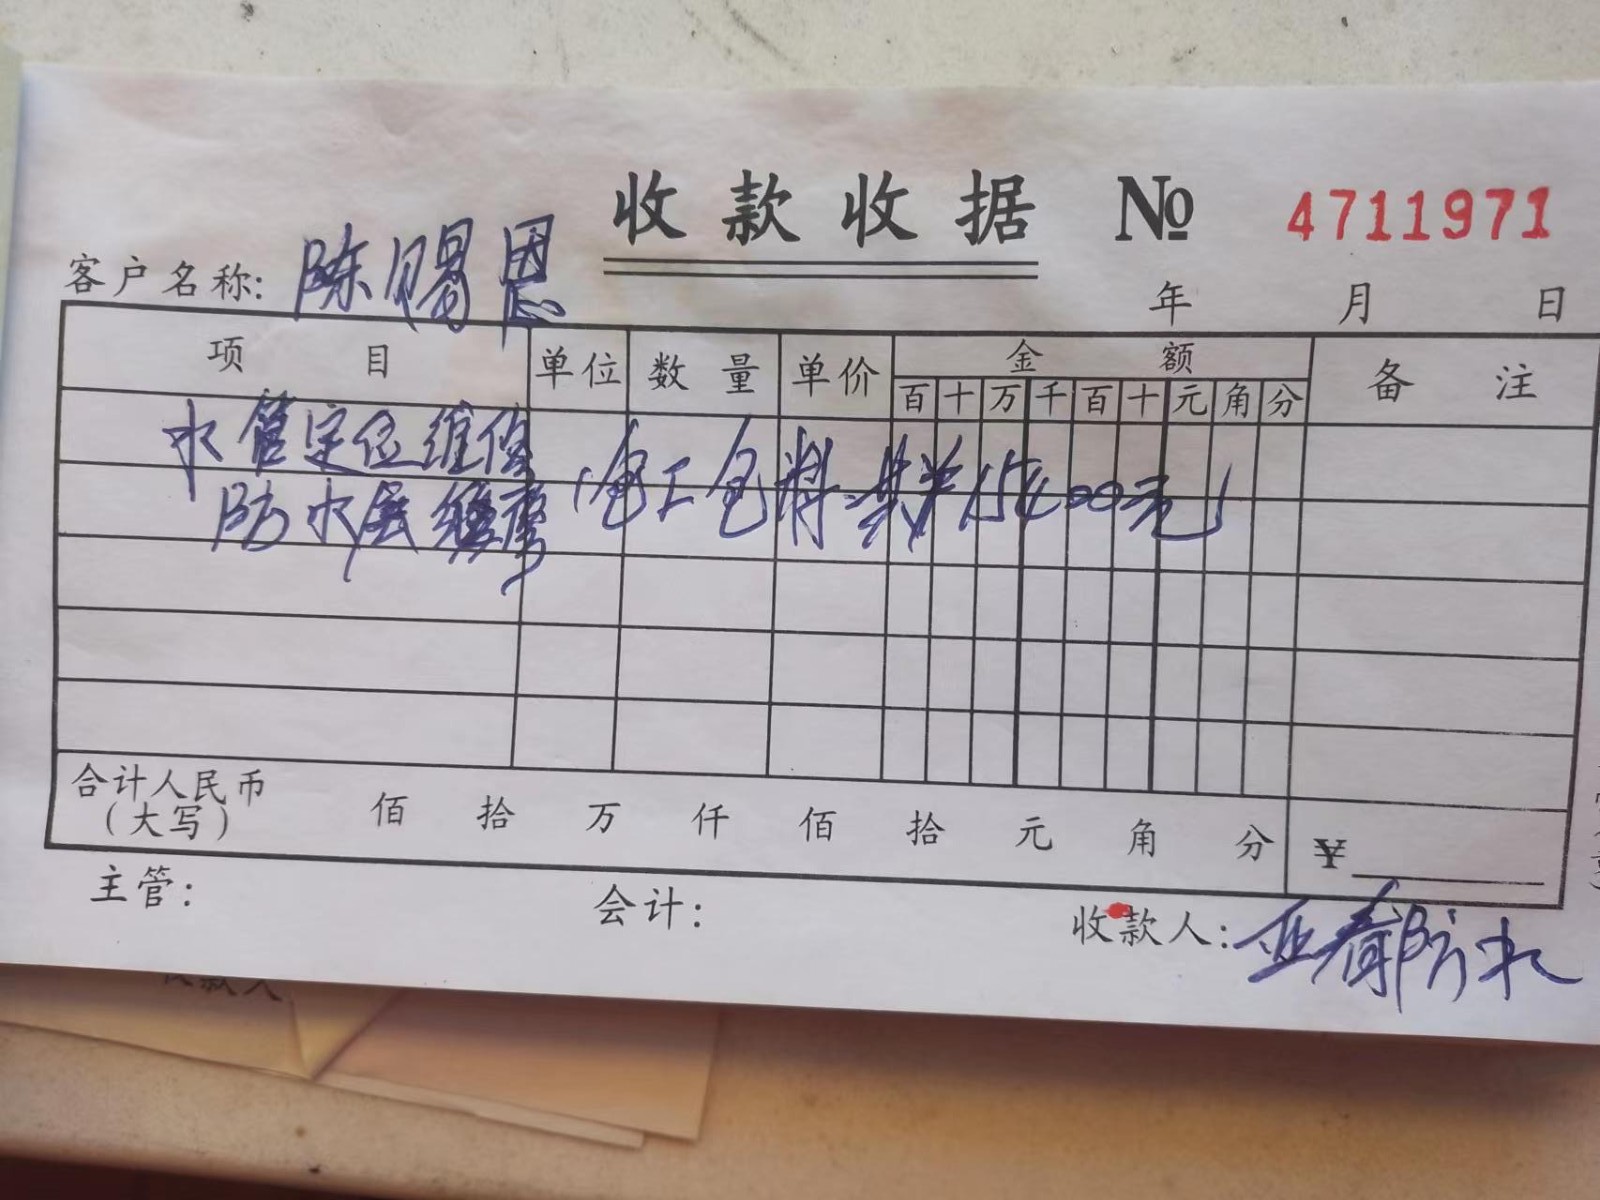 收款收据 № 4711971
客户名称: 陈赐恩 年 月 日
项目 单位 数量 单价 金额 备注
百 十 万 千 百 十 元 角 分
水管定位维修
防水层维修 (包工包料 共半15400元)
合计人民币 (大写) 佰 拾 万 仟 佰 拾 元 角 分 ¥
主管: 会计: 收款人: 亚春防水
收款人